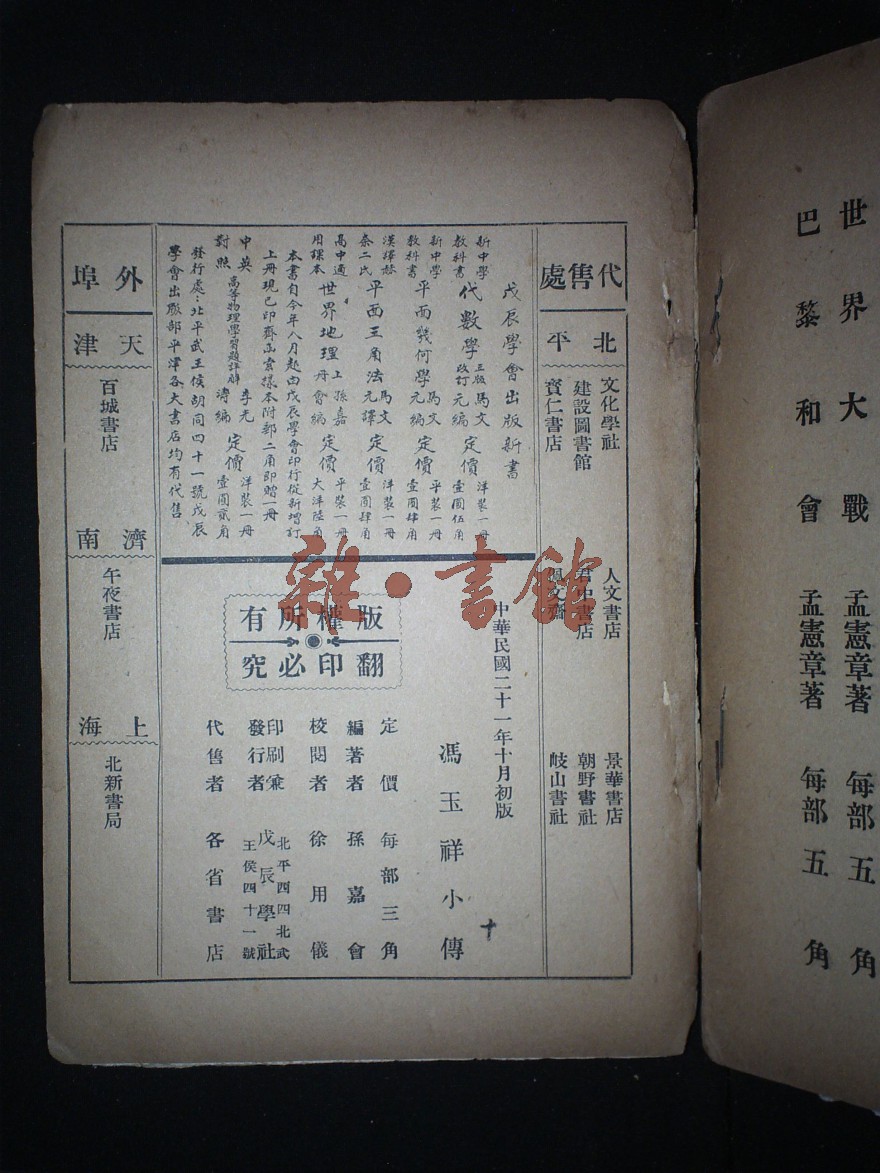 世界大戰 孟憲章著 每部五角
巴黎和會 孟憲章著 每部五角
代售處
北平
文化學社
建設圖書館
寶仁書店
人文書店
君中書店
佩文齋
景華書店
朝野書社
岐山書社
戊辰學會出版新書
新中學教科書 代數學 三版改訂 馬文元編 定價 洋裝一冊 壹圓伍角
新中學教科書 平面幾何學 馬文元編 定價 平裝一冊 壹圓肆角
漢譯赫奈二氏 平面三角法 馬文元譯 定價 洋裝一冊 壹圓肆角
高中適用課本 世界地理 上冊 孫嘉會編 定價 平裝一冊 大洋陸角
本書自今年八月起由戊辰學會印行從新增訂
上冊現已印齊函索樣本附郵二角即贈一冊
中英對照 高等物理學習題詳解 李光濤編 定價 洋裝一冊 壹圓貳角
發行處：北平武王侯胡同四十一號戊辰
學會出版部平津各大書店均有代售
中華民國二十一年十月初版
馮玉祥小傳
十
定價 每部三角
編著者 孫嘉會
校閱者 徐用儀
印刷兼發行者 北平西四北武王侯四十一號 戊辰學社
代售者 各省書店
版權所有
翻印必究
外埠
天津
百城書店
濟南
午夜書店
上海
北新書局
雜·書館